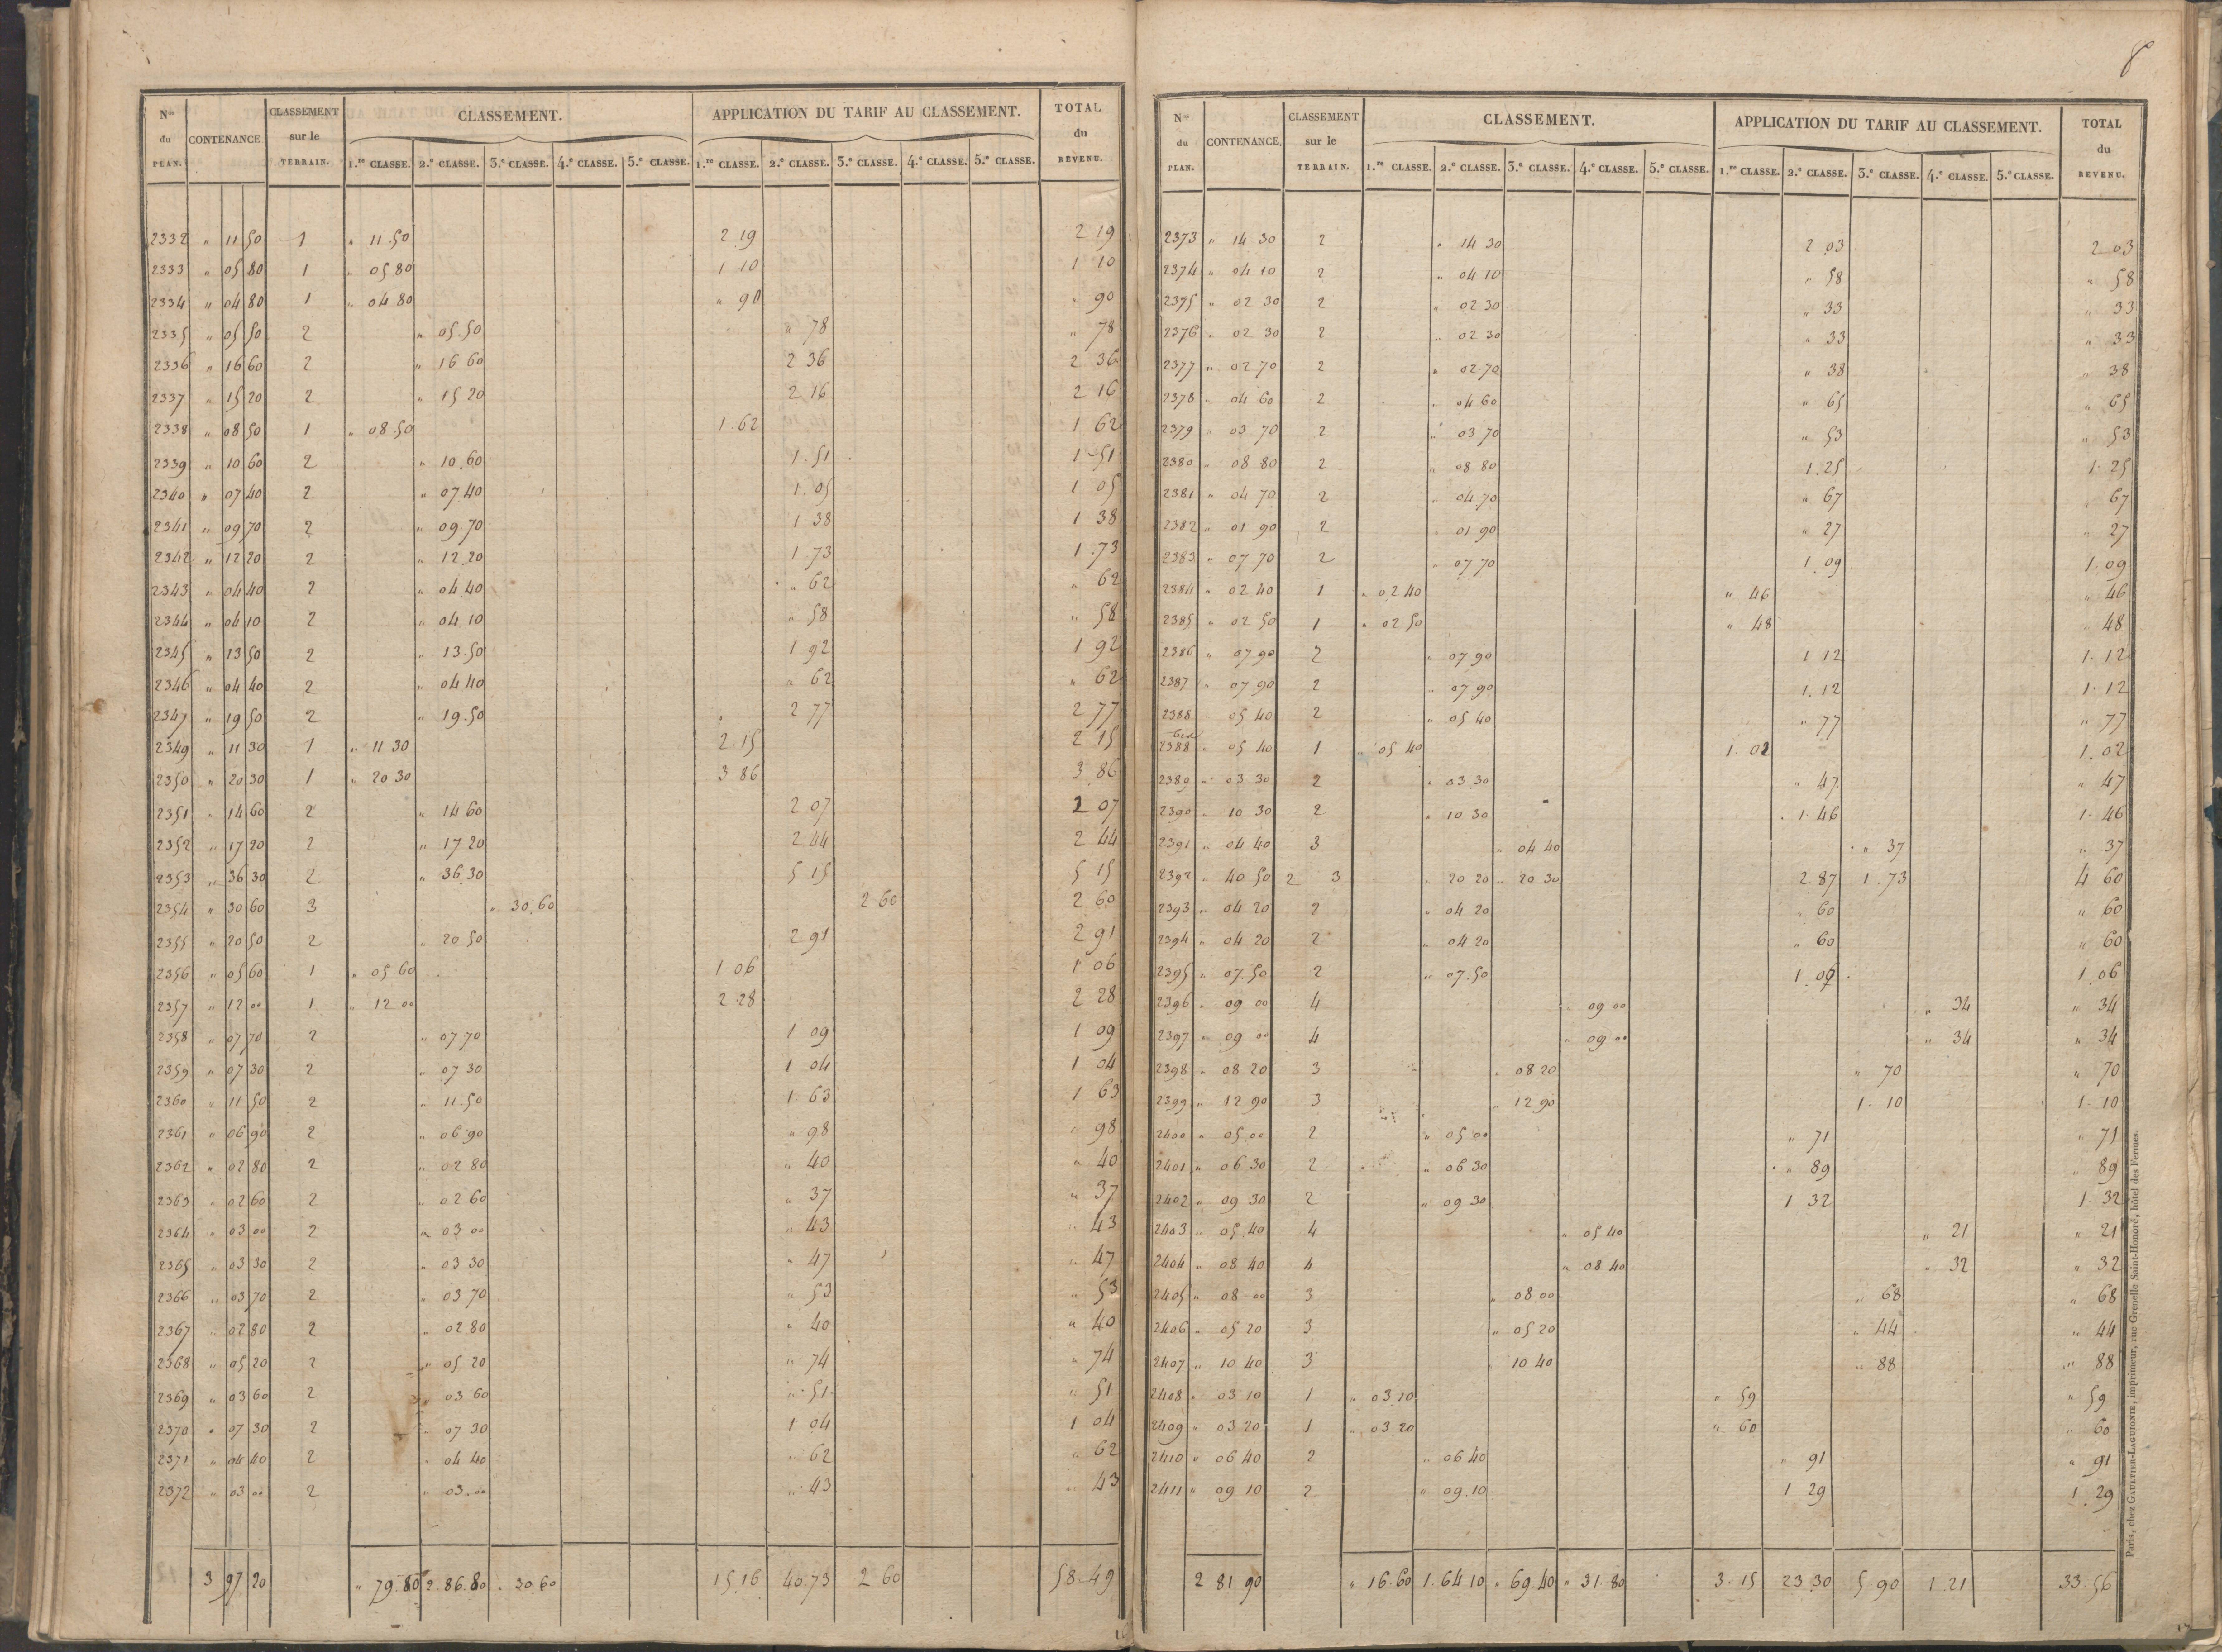 8
Nos du PLAN. CONTENANCE CLASSEMENT sur le TERRAIN. CLASSEMENT. APPLICATION DU TARIF AU CLASSEMENT. TOTAL du REVENU.
1.re CLASSE. 2.e CLASSE. 3.e CLASSE. 4.e CLASSE. 5.e CLASSE. 1.re CLASSE. 2.e CLASSE. 3.e CLASSE. 4.e CLASSE. 5.e CLASSE.
2332 " 11 50 1 " 11.50 2 19 2 19
2333 " 05 80 1 " 05 80 1 10 1 10
2334 " 04 80 1 " 04 80 " 90 " 90
2335 " 05 50 2 " 05.50 " 78 " 78
2336 " 16 60 2 " 16 60 2 36 2 36
2337 " 15 20 2 " 15 20 2 16 2 16
2338 " 08 50 1 " 08.50 1.62 1 62
2339 " 10 60 2 " 10.60 1.51 1 51
2340 " 07 40 2 " 07 40 1.05 1 05
2341 " 09 70 2 " 09.70 1 38 1 38
2342 " 12 20 2 " 12.20 1.73 1.73
2343 " 04 40 2 " 04.40 " 62 " 62
2344 " 04 10 2 " 04 10 " 58 " 58
2345 " 13 50 2 " 13.50 1 92 1 92
2346 " 04 40 2 " 04 40 " 62 " 62
2347 " 19 50 2 " 19.50 2 77 2 77
2349 " 11 30 1 " 11 30 2.15 2 15
2350 " 20 30 1 " 20 30 3 86 3 86
2351 " 14 60 2 " 14 60 2 07 2 07
2352 " 17 20 2 " 17 20 2.44 2 44
2353 " 36 30 2 " 36.30 5 15 5 15
2354 " 30 60 3 " 30.60 2 60 2 60
2355 " 20 50 2 " 20 50 2 91 2 91
2356 " 05 60 1 " 05 60 1 06 1 06
2357 " 12 00 1 " 12 00 2.28 2 28
2358 " 07 70 2 " 07 70 1 09 1 09
2359 " 07 30 2 " 07 30 1 04 1 04
2360 " 11 50 2 " 11.50 1 63 1 63
2361 " 06 90 2 " 06 90 " 98 " 98
2362 " 02 80 2 " 02 80 " 40 " 40
2363 " 02 60 2 " 02 60 " 37 " 37
2364 " 03 00 2 " 03 00 " 43 " 43
2365 " 03 30 2 " 03 30 " 47 " 47
2366 " 03 70 2 " 03 70 " 53 " 53
2367 " 02 80 2 " 02.80 " 40 " 40
2368 " 05 20 2 " 05 20 " 74 " 74
2369 " 03 60 2 " 03 60 " 51 " 51
2370 " 07 30 2 " 07 30 1 04 1 04
2371 " 04 40 2 " 04 40 " 62 " 62
2372 " 03 00 2 " 03.00 " 43 " 43
3 97 20 " 79.80 2.86.80 " 30.60 15.16 40.73 2 60 58.49
Nos du PLAN. CONTENANCE. CLASSEMENT sur le TERRAIN. CLASSEMENT. APPLICATION DU TARIF AU CLASSEMENT. TOTAL du REVENU.
1.re CLASSE. 2.e CLASSE. 3.e CLASSE. 4.e CLASSE. 5.e CLASSE. 1.re CLASSE. 2.e CLASSE. 3.e CLASSE. 4.e CLASSE. 5.e CLASSE.
2373 " 14 30 2 " 14 30 2 03 2 03
2374 " 04 10 2 " 04 10 " 58 " 58
2375 " 02 30 2 " 02 30 " 33 " 33
2376 " 02 30 2 " 02 30 " 33 " 33
2377 " 02 70 2 " 02.70 " 38 " 38
2378 " 04 60 2 " 04 60 " 65 " 65
2379 " 03 70 2 " 03 70 " 53 " 53
2380 " 08 80 2 " 08 80 1.25 1.25
2381 " 04 70 2 " 04 70 " 67 " 67
2382 " 01 90 2 " 01 90 " 27 " 27
2383 " 07 70 2 " 07 70 1.09 1.09
2384 " 02 40 1 " 02 40 " 46 " 46
2385 " 02 50 1 " 02 50 " 48 " 48
2386 " 07 90 2 " 07 90 1 12 1.12
2387 " 07 90 2 " 07 90 1.12 1.12
2388 05 40 2 " 05 40 " 77 " 77
2388 bis " 05 40 1 " 05 40 1.02 1.02
2389 " 03 30 2 " 03.30 " 47 " 47
2390 " 10 30 2 " 10 30 1.46 1.46
2391 " 04 40 3 " 04 40 " 37 " 37
2392 " 40 50 2 3 " 20 20 " 20 30 2 87 1.73 4 60
2393 " 04 20 2 " 04 20 " 60 " 60
2394 " 04 20 2 " 04 20 " 60 " 60
2395 " 07.50 2 " 07.50 1.06 1.06
2396 " 09 00 4 " 09 00 " 34 " 34
2397 " 09 00 4 " 09 00 " 34 " 34
2398 " 08 20 3 " 08 20 " 70 " 70
2399 " 12 90 3 12 90 1.10 1.10
2400 " 05 00 2 " 05 00 " 71 " 71
2401 " 06 30 2 " 06 30 " 89 " 89
2402 " 09 30 2 " 09 30 1 32 1 32
2403 " 05 40 4 " 05 40 " 21 " 21
2404 " 08 40 4 " 08 40 " 32 " 32
2405 " 08 00 3 " 08.00 " 68 " 68
2406 " 05 20 3 " 05 20 " 44 " 44
2407 " 10 40 3 10 40 " 88 " 88
2408 " 03 10 1 " 03.10 " 59 " 59
2409 " 03 20 1 " 03.20 " 60 " 60
2410 " 06 40 2 " 06 40 " 91 " 91
2411 " 09 10 2 " 09.10 1 29 1.29
2 81 90 " 16.60 1.64 10 " 69.40 " 31.80 3.15 23.30 5 90 1.21 33.56
Paris, chez GAULTIER-LAGUIONIE, imprimeur, rue Grenelle Saint-Honoré, hôtel des Fermes.